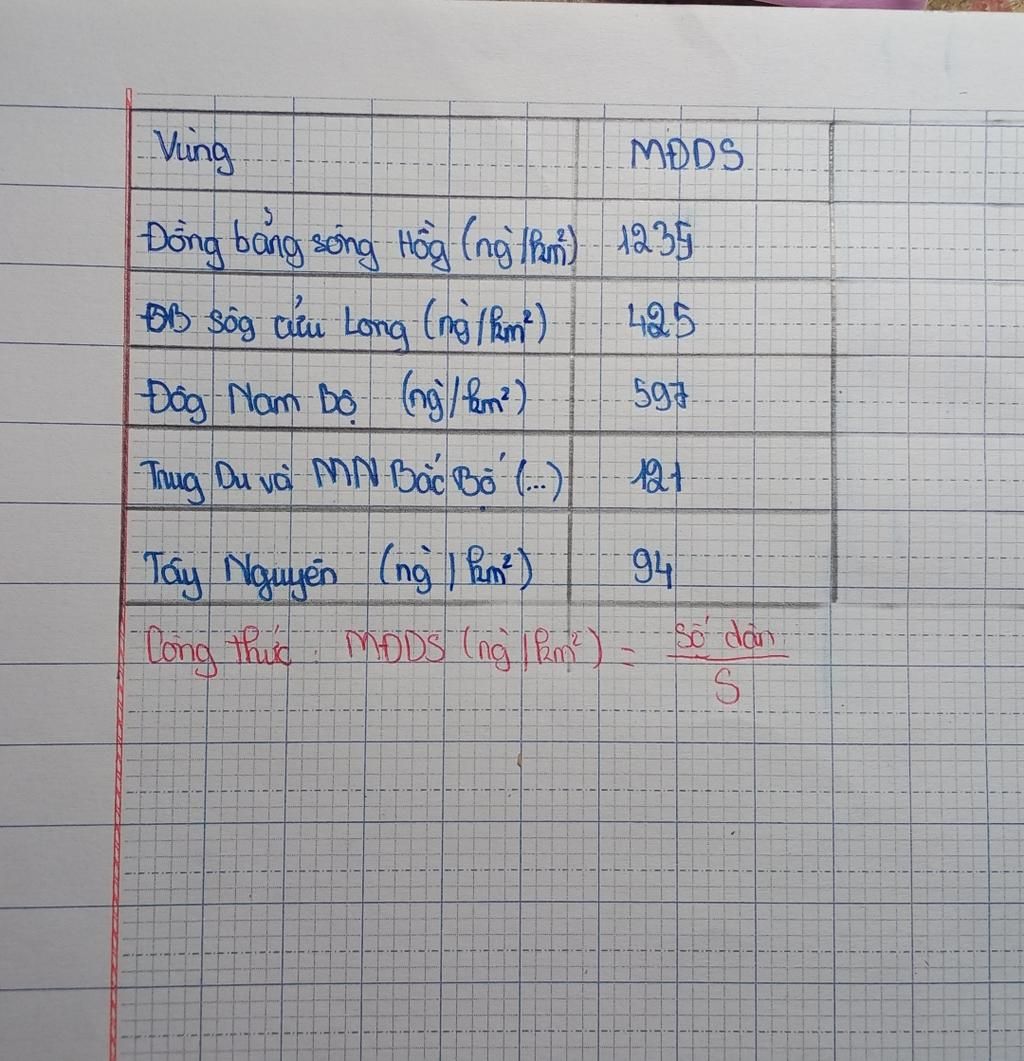 Vùng MĐDS
Đồng bằng sông Hồg (ng/km²) 1235
ĐB sôg cửu Long (ng/km²) 425
Đôg Nam Bộ (ng/km²) 597
Trug Du và MN Bắc Bộ (...) 121
Tây Nguyên (ng/km²) 94
Công thức: MĐDS (ng/km²) = số dân
S